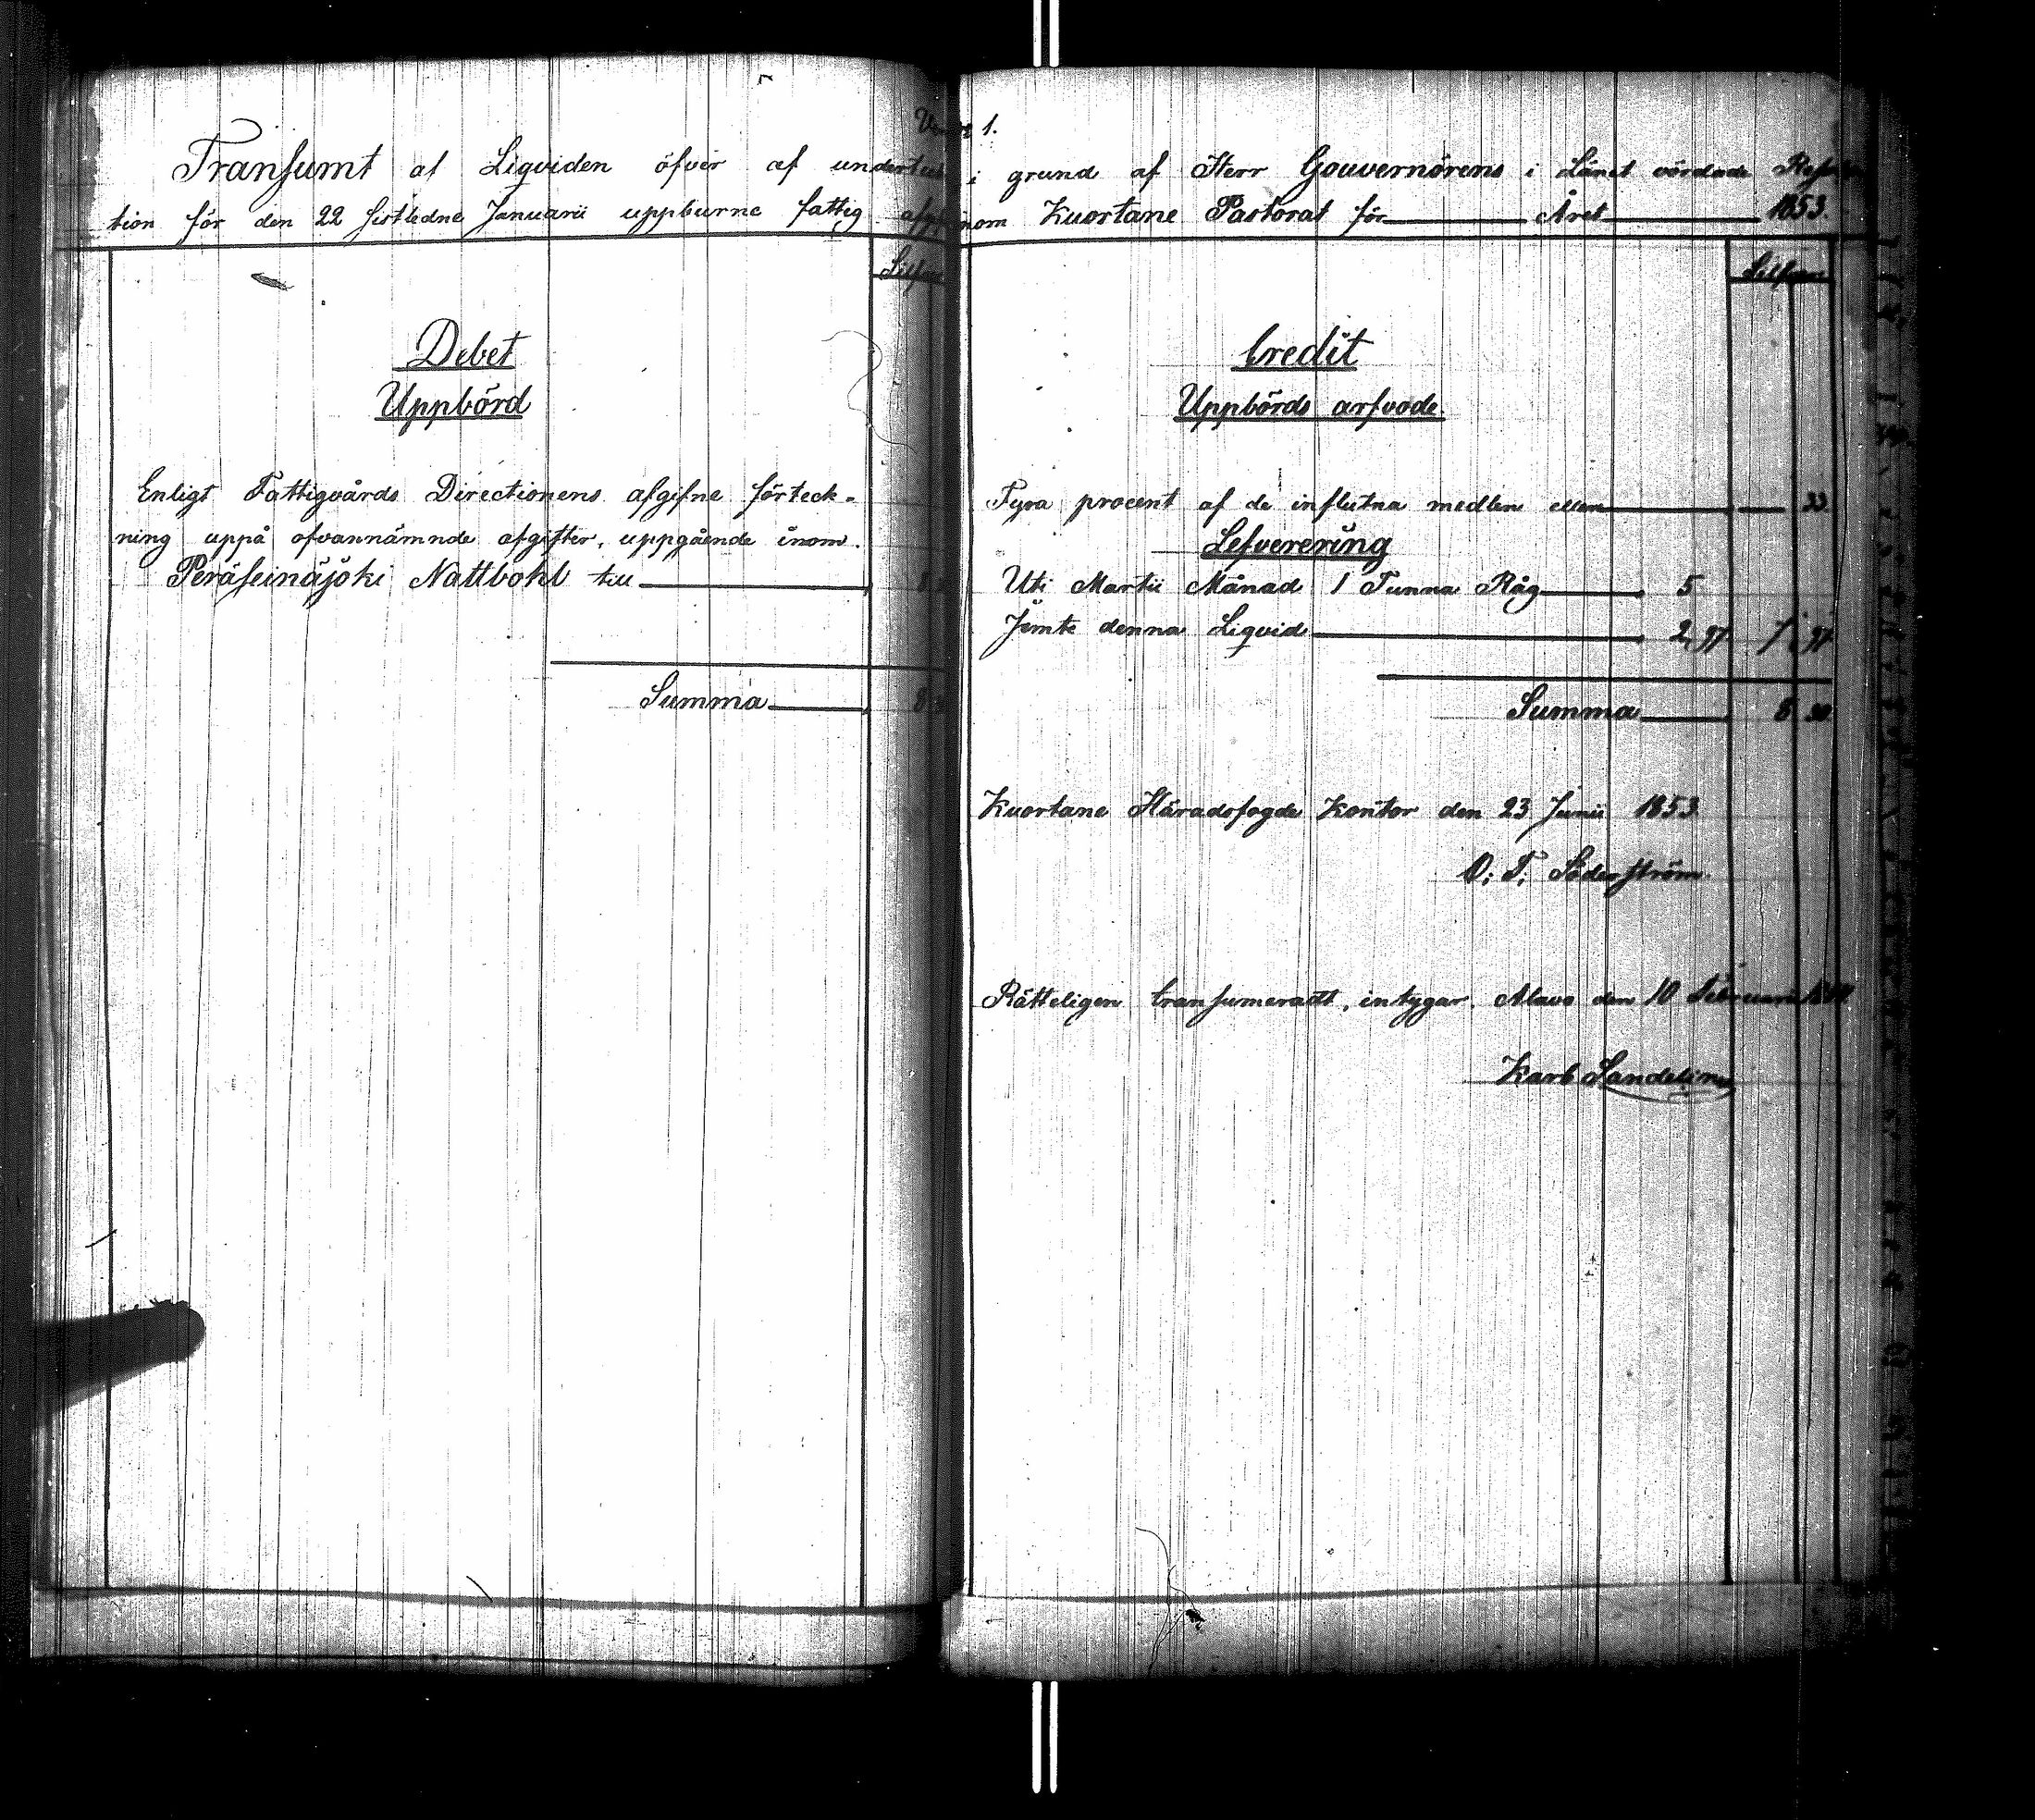 1.
Transumt af Liqviden öfver af i grund af Herr Gouvernörens i Länet vördade
tion för den 22 sistledne Januarii uppburne fattig inom Kuortane Pastorat för Året 1853.
Debet
Uppbörd
Enligt Fattigvårds Directionens afgifne förteck-
ning uppå ofvannämnde afgifter, uppgående inom
Peräseinäjöki Nattbohl till
Summa 8
Silfver
Credit
Uppbörds arfvode.
Fyra procent af de influtna medlen eller — 33
Lefverering
Uti Martii Månad 1 Tunna Råg 5
Jemte denna Liqvid 2 97 7 97
Summa 8 30
Kuortane Häradsfogde Kontor den 23 Junii 1853.
O: T: Söderström.
Rätteligen transumeradt, intygar. Alavo den 10 Februarii
Karl Sandelin